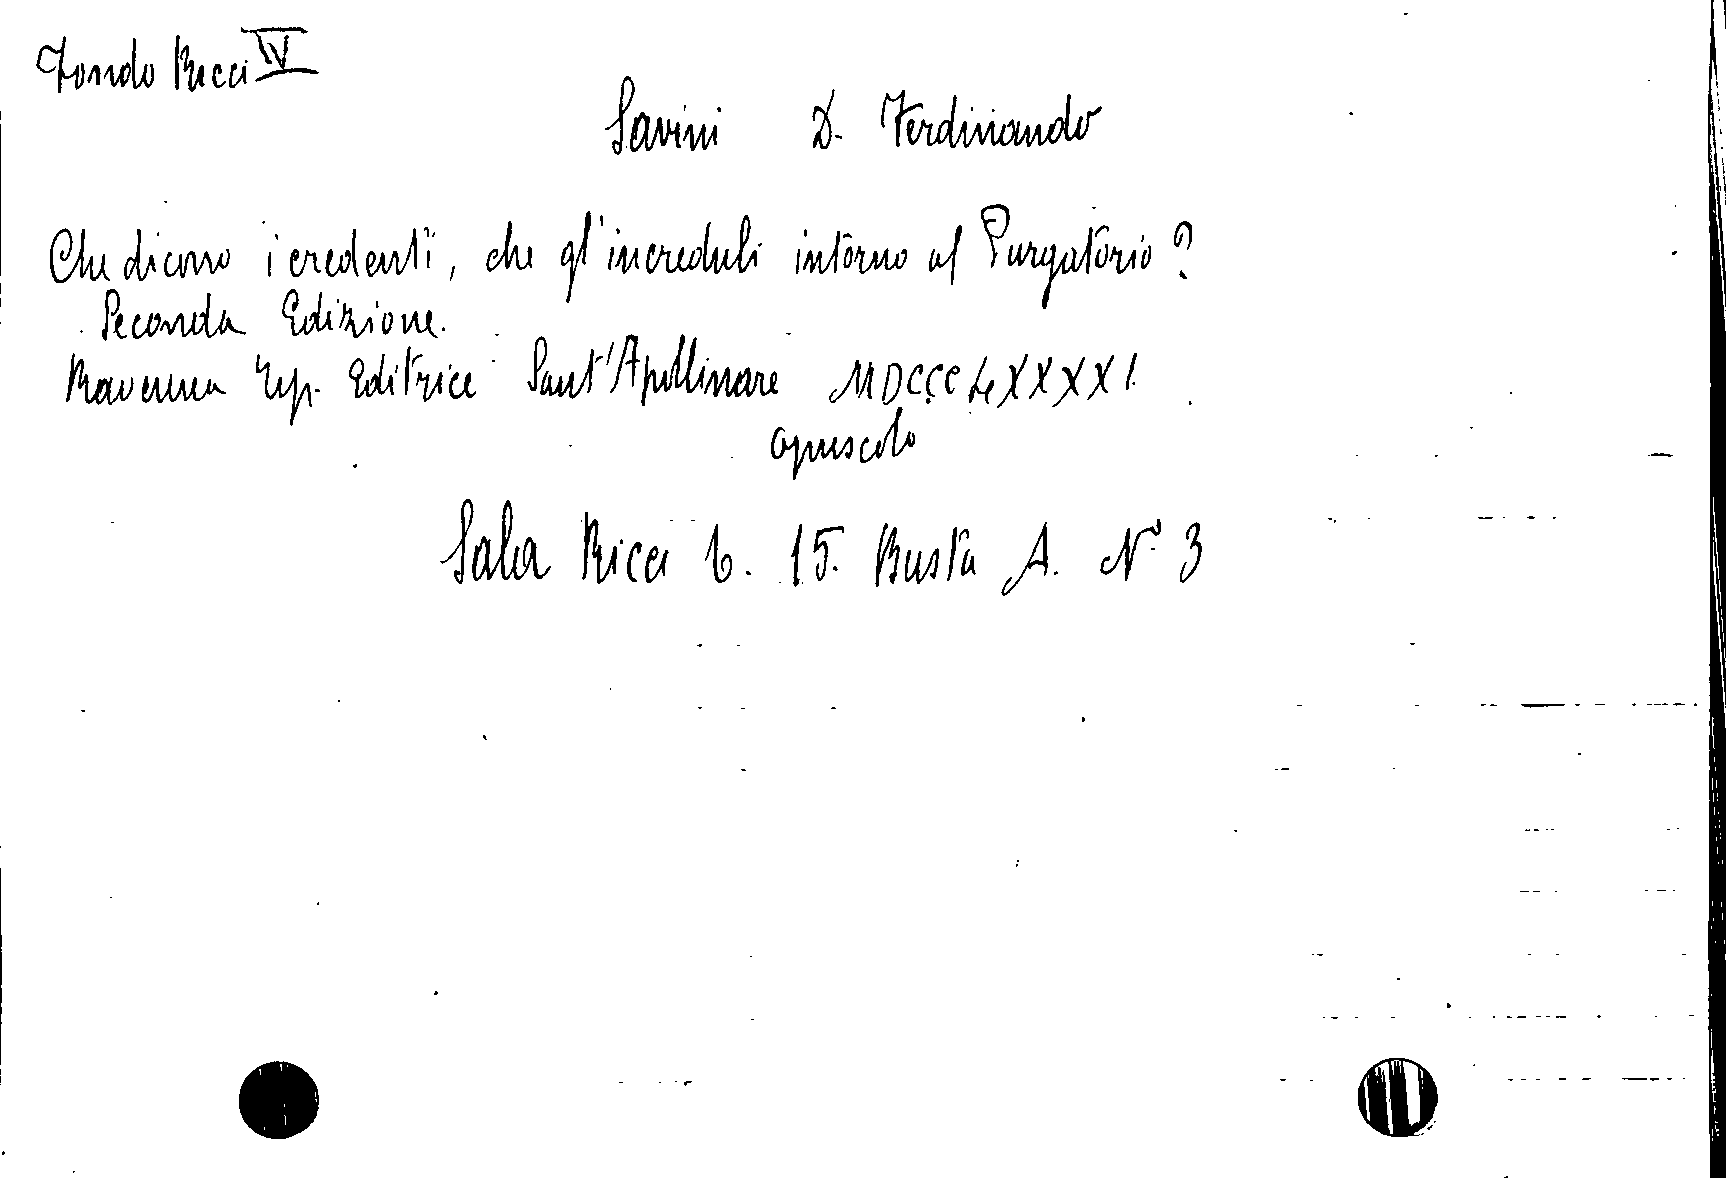 Fondo Ricci IV
Savini D. Ferdinando
Che dicono i credenti, che gl'increduli intorno al Purgatorio?
Seconda Edizione.
Ravenna Tip. Editrice Sant'Apollinare MDCCCLXXXXI.
opuscolo
Sala Ricci b. 15. Busta A. N° 3